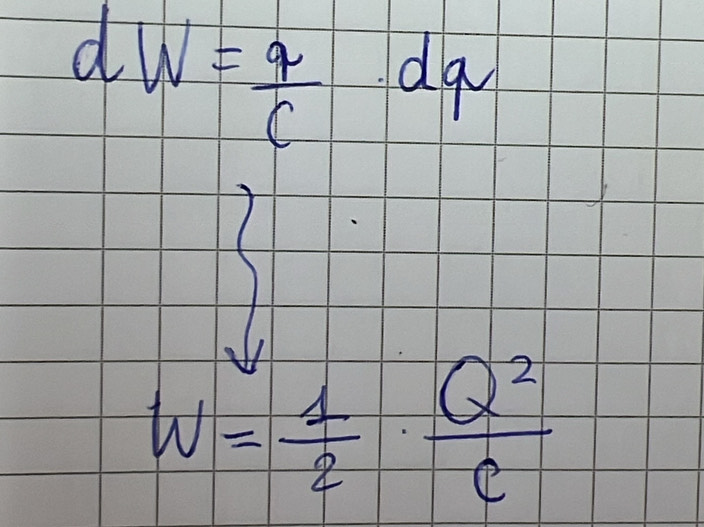 dW = q/C · dq
W = 1/2 · Q²/C